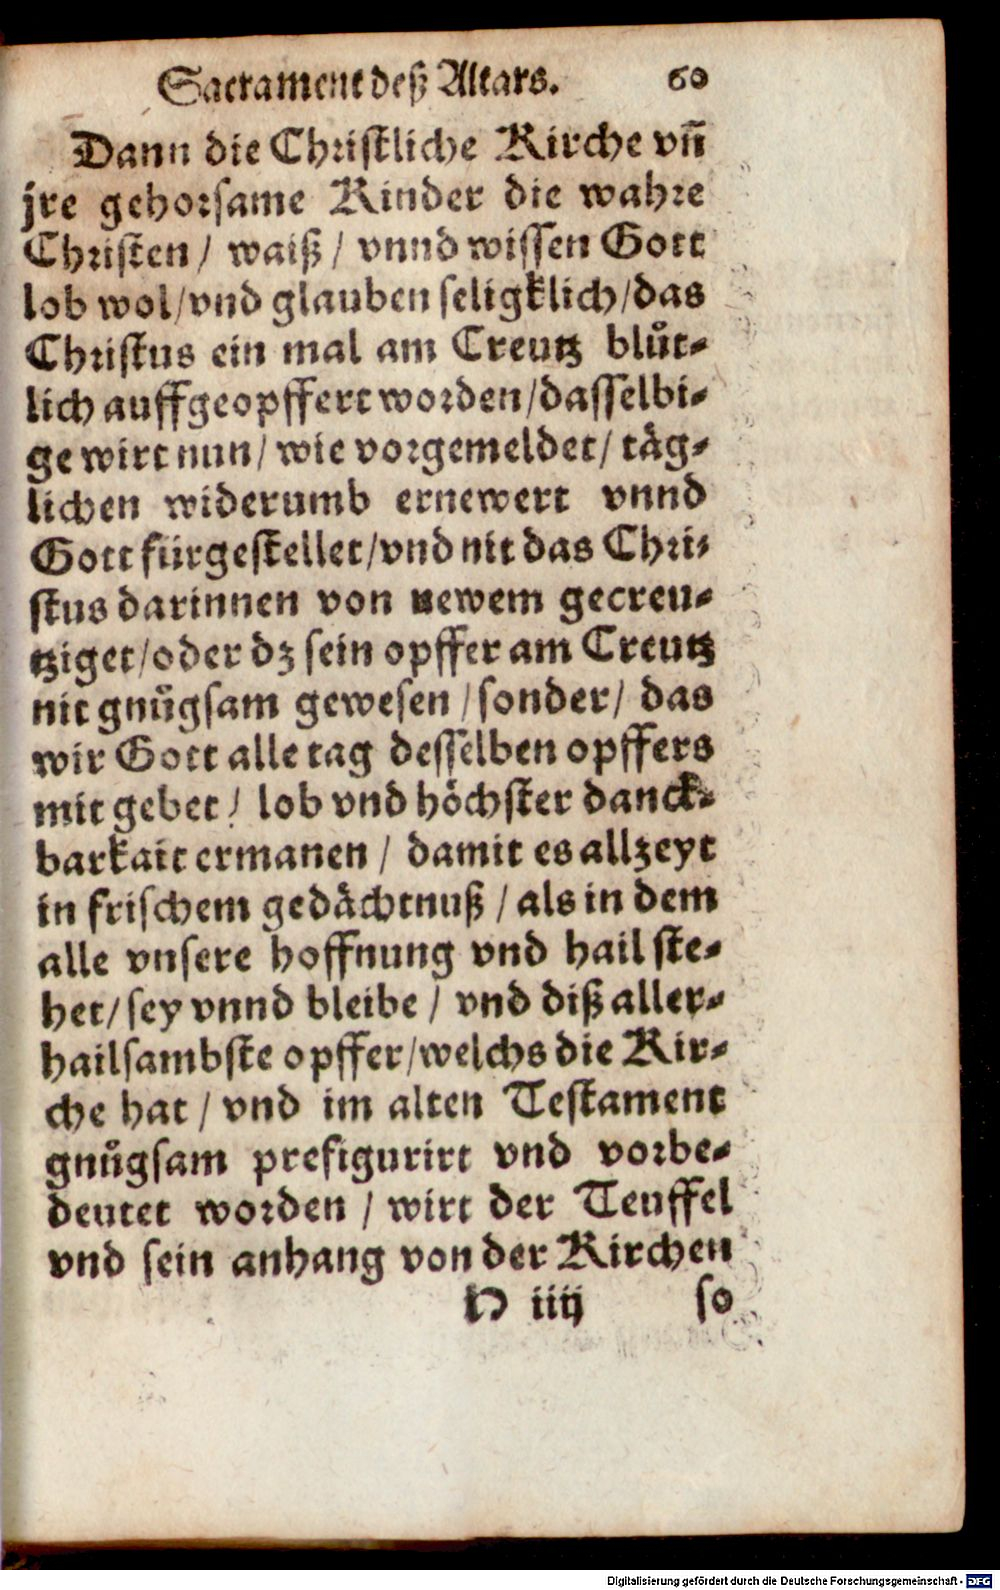 Sacrament deß Altars. 60
Dann die Christliche Kirche vñ
jre gehorsame Kinder die wahre
Christen / waiß / vnnd wissen Gott
lob wol / vnd glauben seligklich / das
Christus ein mal am Creutz blůt-
lich auffgeopffert worden / dasselbi-
ge wirt nun / wie vorgemeldet / täg-
lichen widerumb ernewert vnnd
Gott fürgestellet / vnd nit das Chri-
stus darinnen von newem gecreu-
tziget / oder dz sein opffer am Creutz
nit gnůgsam gewesen / sonder / das
wir Gott alle tag desselben opffers
mit gebet / lob vnd höchster danck-
barkait ermanen / damit es allzeyt
in frischem gedächtnuß / als in dem
alle vnsere hoffnung vnd hail ste-
het / sey vnnd bleibe / vnd diß aller-
hailsambste opffer / welchs die Kir-
che hat / vnd im alten Testament
gnůgsam prefigurirt vnd vorbe-
deutet worden / wirt der Teuffel
vnd sein anhang von der Kirchen
H iiij so
Digitalisierung gefördert durch die Deutsche Forschungsgemeinschaft - DFG